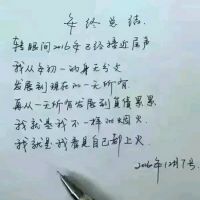 年终总结
转眼间2016年已经接近尾声
我从年初一的身无分文
发展到现在的一无所有
再从一无所有发展到负债累累
我就是我不一样的烟火
我就是我看是自己都上火
2016年12月7号